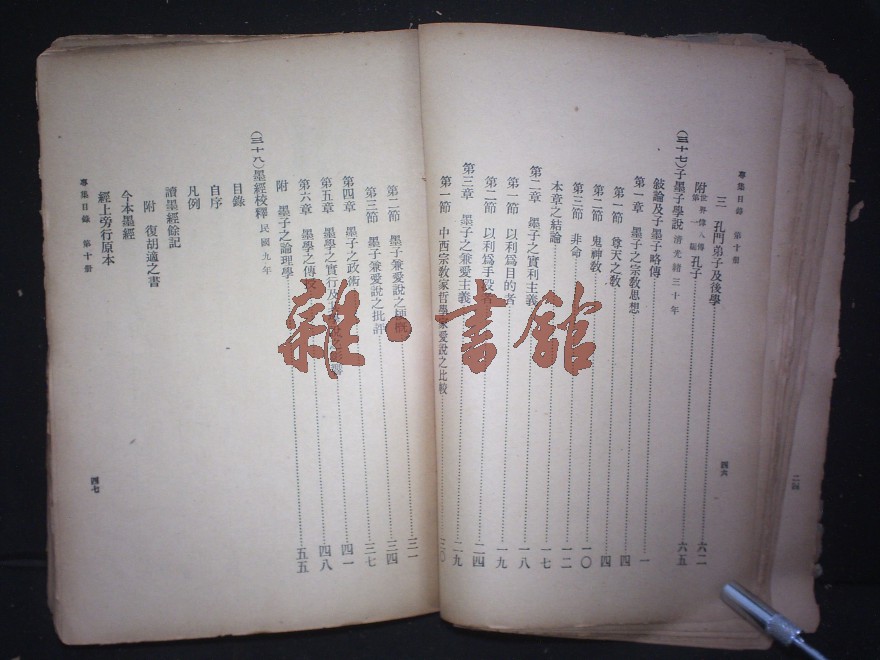 專集目錄 第十冊
三 孔門弟子及後學 六二
附 世界偉人傳第一編 孔子 六五
(三十七)子墨子學說 清光緒三十年
敍論及子墨子略傳 一
第一章 墨子之宗教思想 四
第一節 尊天之教 四
第二節 鬼神教 一〇
第三節 非命 一二
本章之結論 一七
第二章 墨子之實利主義 一八
第一節 以利爲目的者 一九
第二節 以利爲手段者 二四
第三章 墨子之兼愛主義 二九
第一節 中西宗教家哲學家愛說之比較 三〇
四六
二四
第二節 墨子兼愛說之梗概 三一
第三節 墨子兼愛說之批評 三四
第四章 墨子之政術 三七
第五章 墨學之實行及 四一
第六章 墨學之傳授 四八
附 墨子之論理學 五五
(三十八)墨經校釋 民國九年
目錄
自序
凡例
讀墨經餘記
附 復胡適之書
今本墨經
經上旁行原本
專集目錄 第十冊
四七
雜·書館